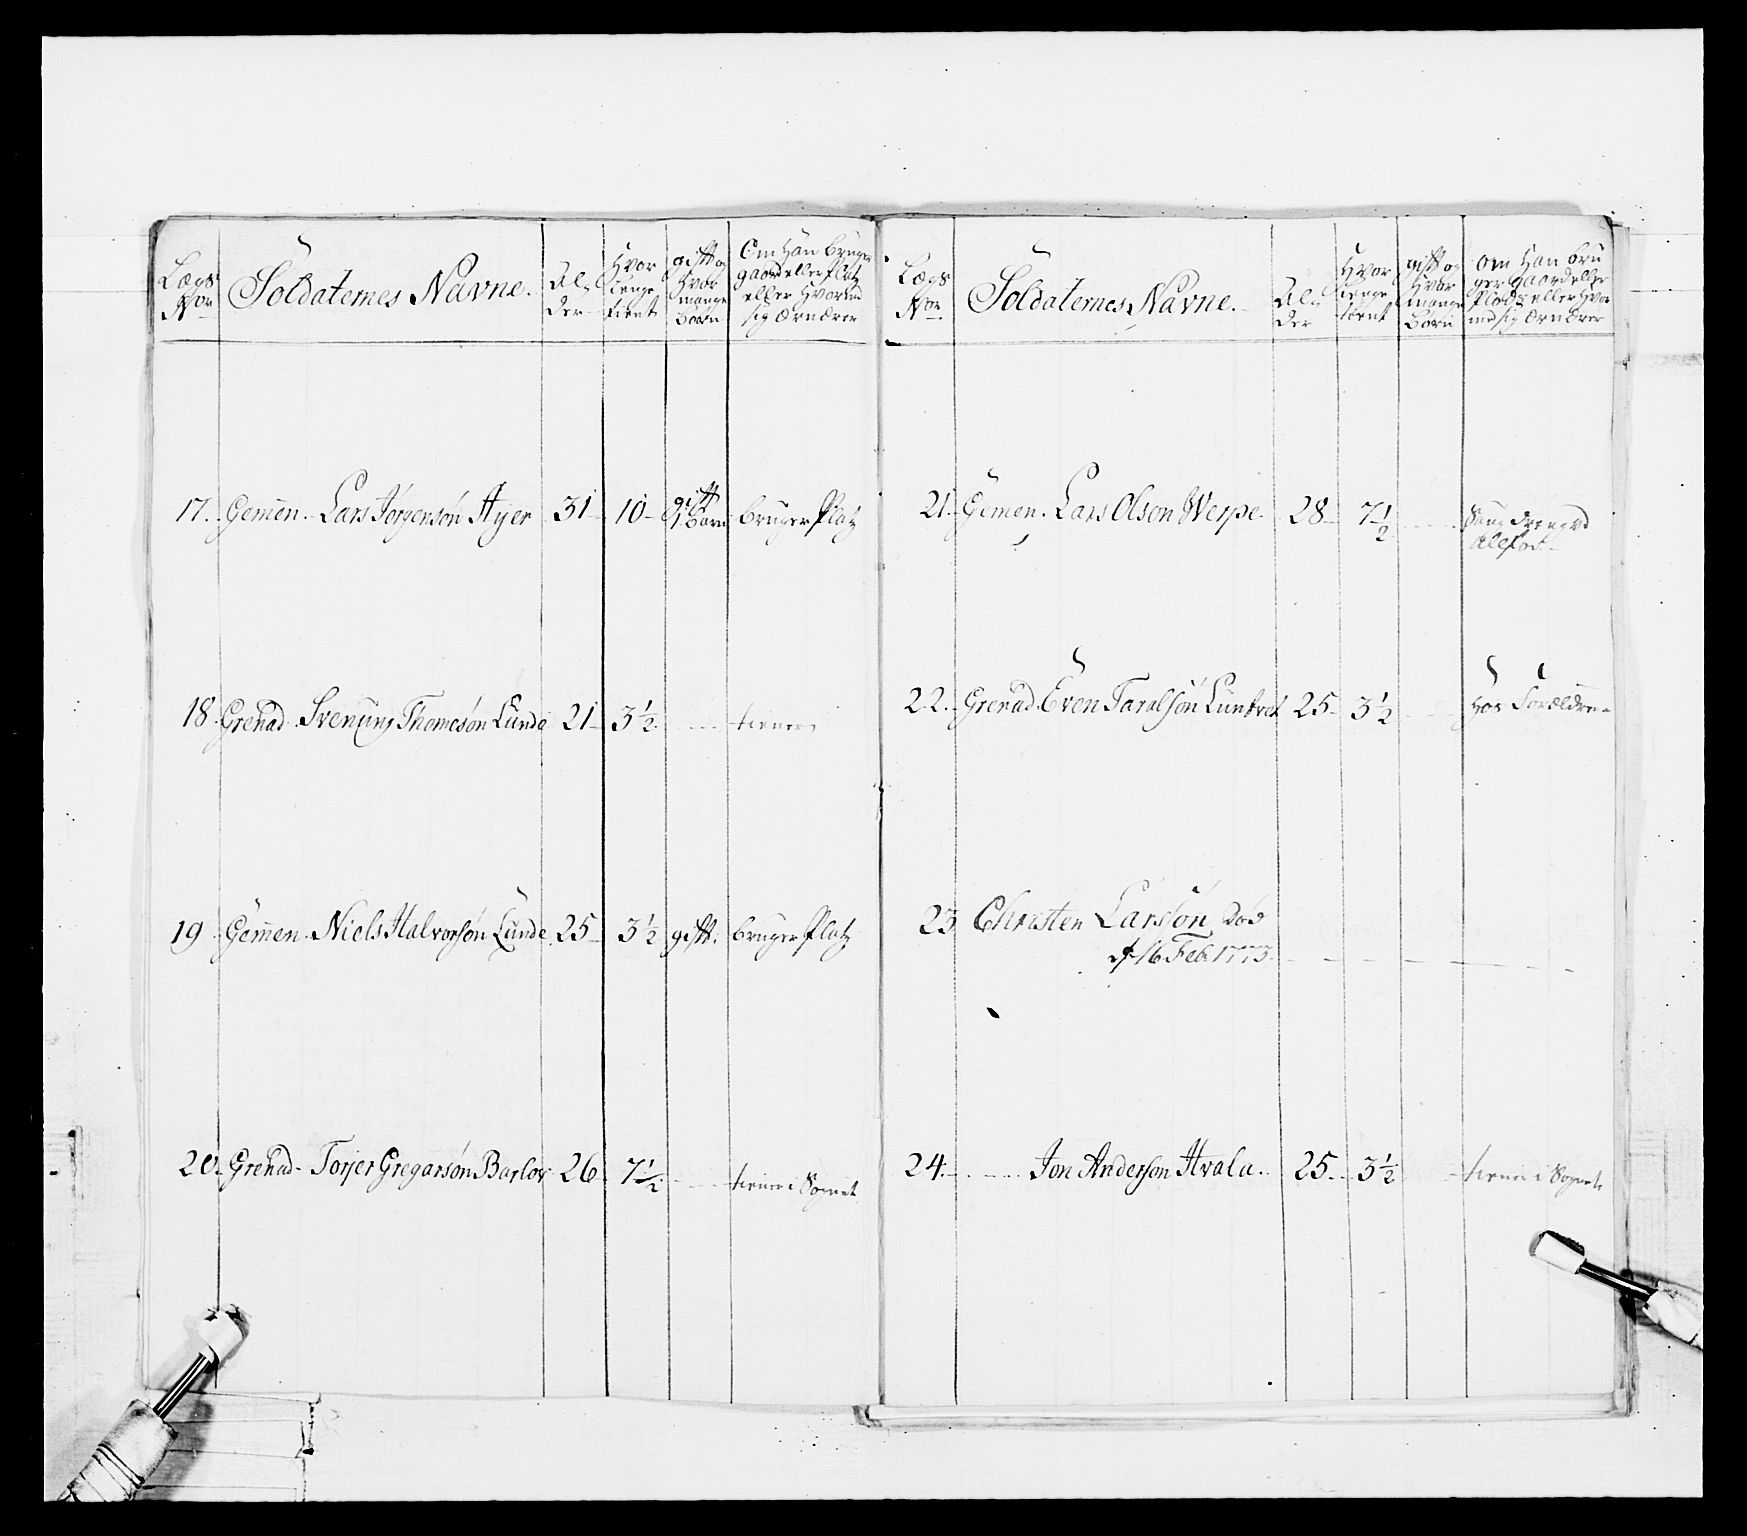 Lægs Nor
Soldaternes Navne.
Al, der
Hvor lenge tient
gift og Hvor mange Börn
Om Han bruger gaard eller Platz eller Hvormed sig ærnærer
17. Gemen. Lars Jörgensön Ayer 31 10 gift 1 Barn bruger Platz
18 Grenad. Svenung Thomesön Lunde 21 3½ tiener
19 Gemen. Niels Halvorsön Lunde 25 3½ gift. bruger Platz
20. Grenad. Torjer Gregarsön Barlov 26 7½ tiener i Sognet
Lægs Nor
Soldaternes Navne.
Al, der
Hvor lenge tient
gift og Hvor mange Börn
om Han bruger gaard eller Plads eller Hvor med sig ærnærer
21. Gemen. Lars Olson Werpe 28 7½
22. Grenad. Even Taralsön Lundvet 25 3½ Hos Forældrene
23 Christen Larssön Död
d 16 Feb. 1773
24. Jon Anderson Hvala. 25 3½ tiener i Sognet